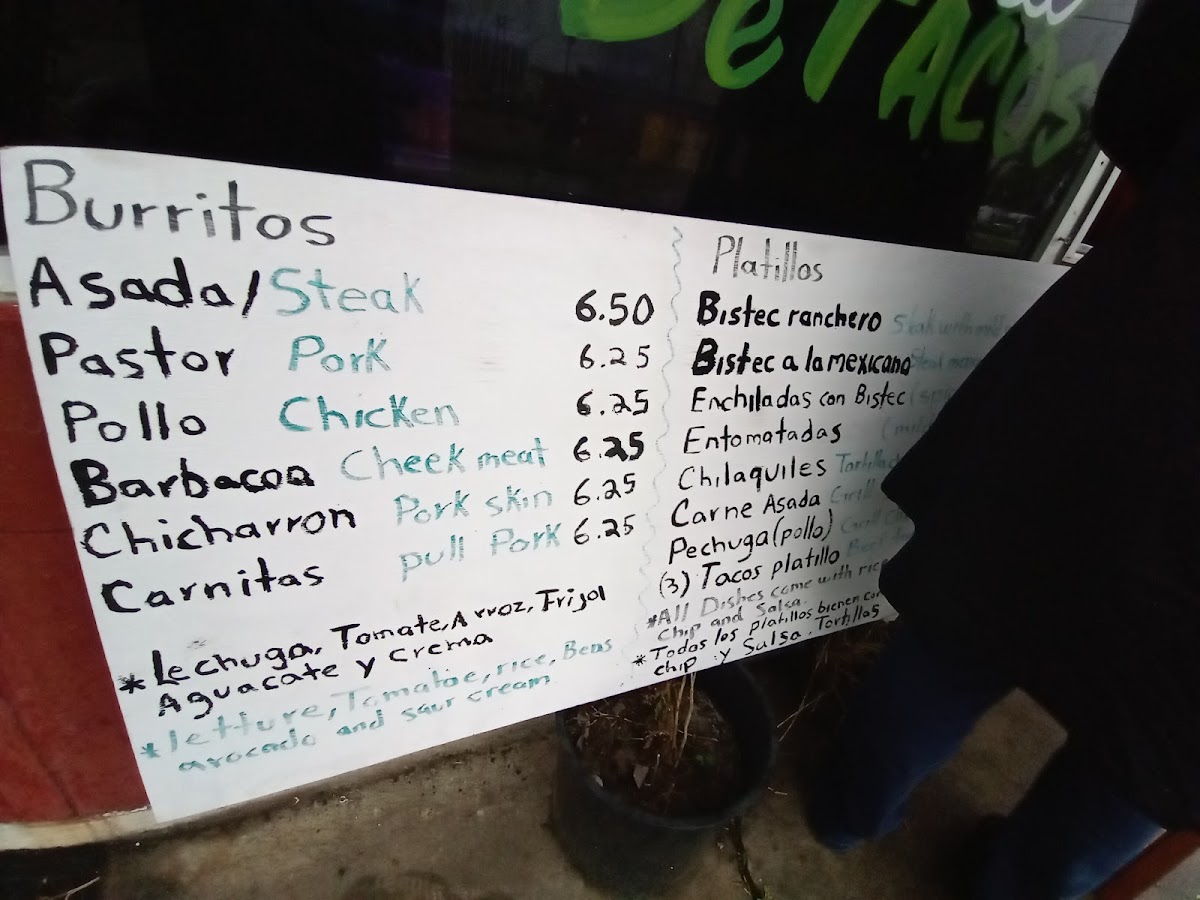 De Tacos
Burritos
Asada/Steak 6.50
Pastor Pork 6.25
Pollo Chicken 6.25
Barbacoa Cheek meat 6.25
Chicharron Pork skin 6.25
Carnitas pull Pork 6.25
*Lechuga, Tomate, Arroz, Frijol
Aguacate y crema
*letture, Tomatoe, rice, Bens
avocado and saur cream
Platillos
Bistec ranchero Steak with
Bistec a la mexicano Steak
Enchiladas con Bistec
Entomatadas
Chilaquiles
Carne Asada Grill
Pechuga (pollo) Grill
(3) Tacos platillo
*All Dishes come with rice
chip and Salsa.
*Todos los platillos bienen con
chip y Salsa. Tortillas